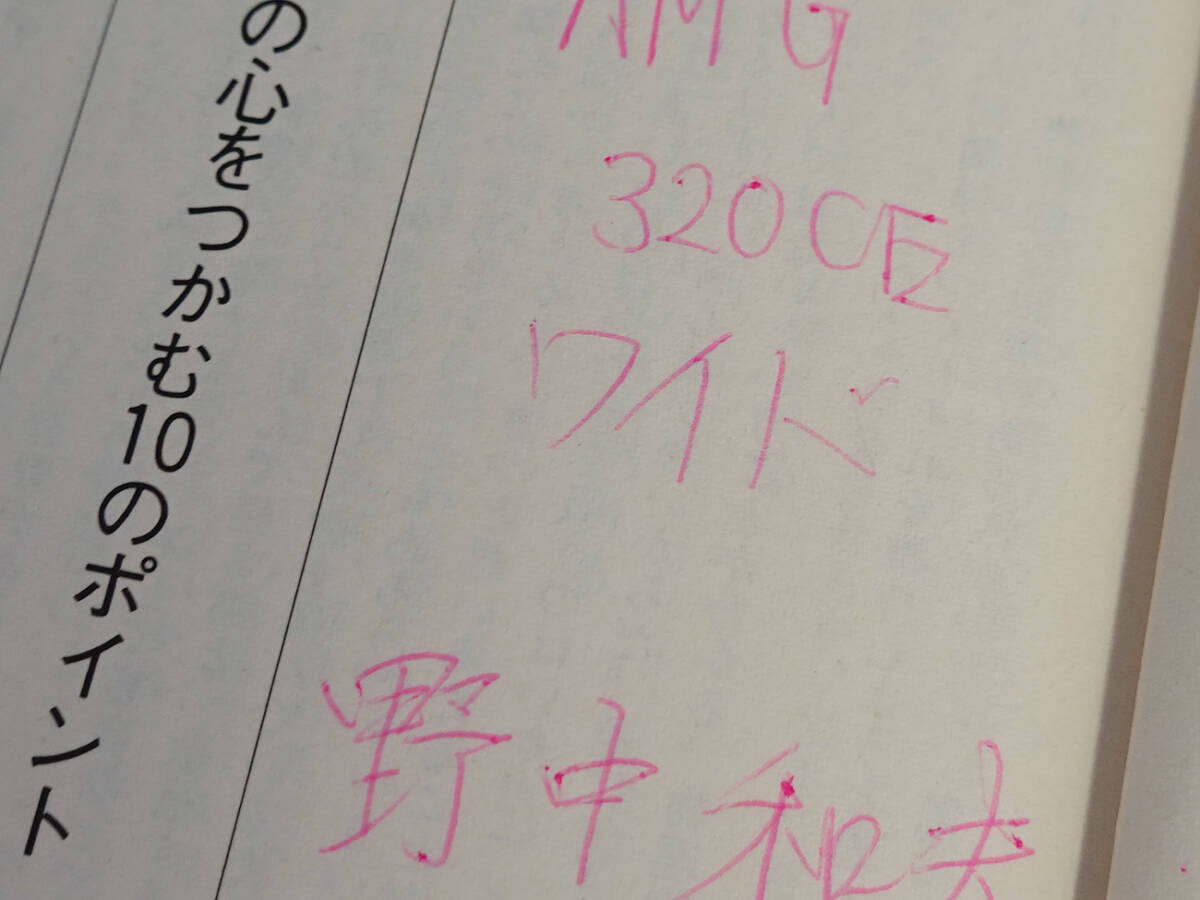 の心をつかむ10のポイント
AMG
320CE
ワイド
野中和夫